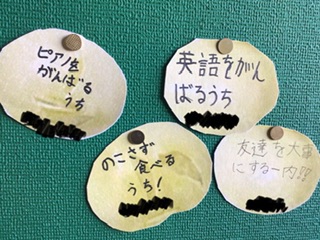 ピアノを
がんばる
うち
英語をがん
ばるうち
のこさず
食べる
うち!
友達を大事
にする一内!!